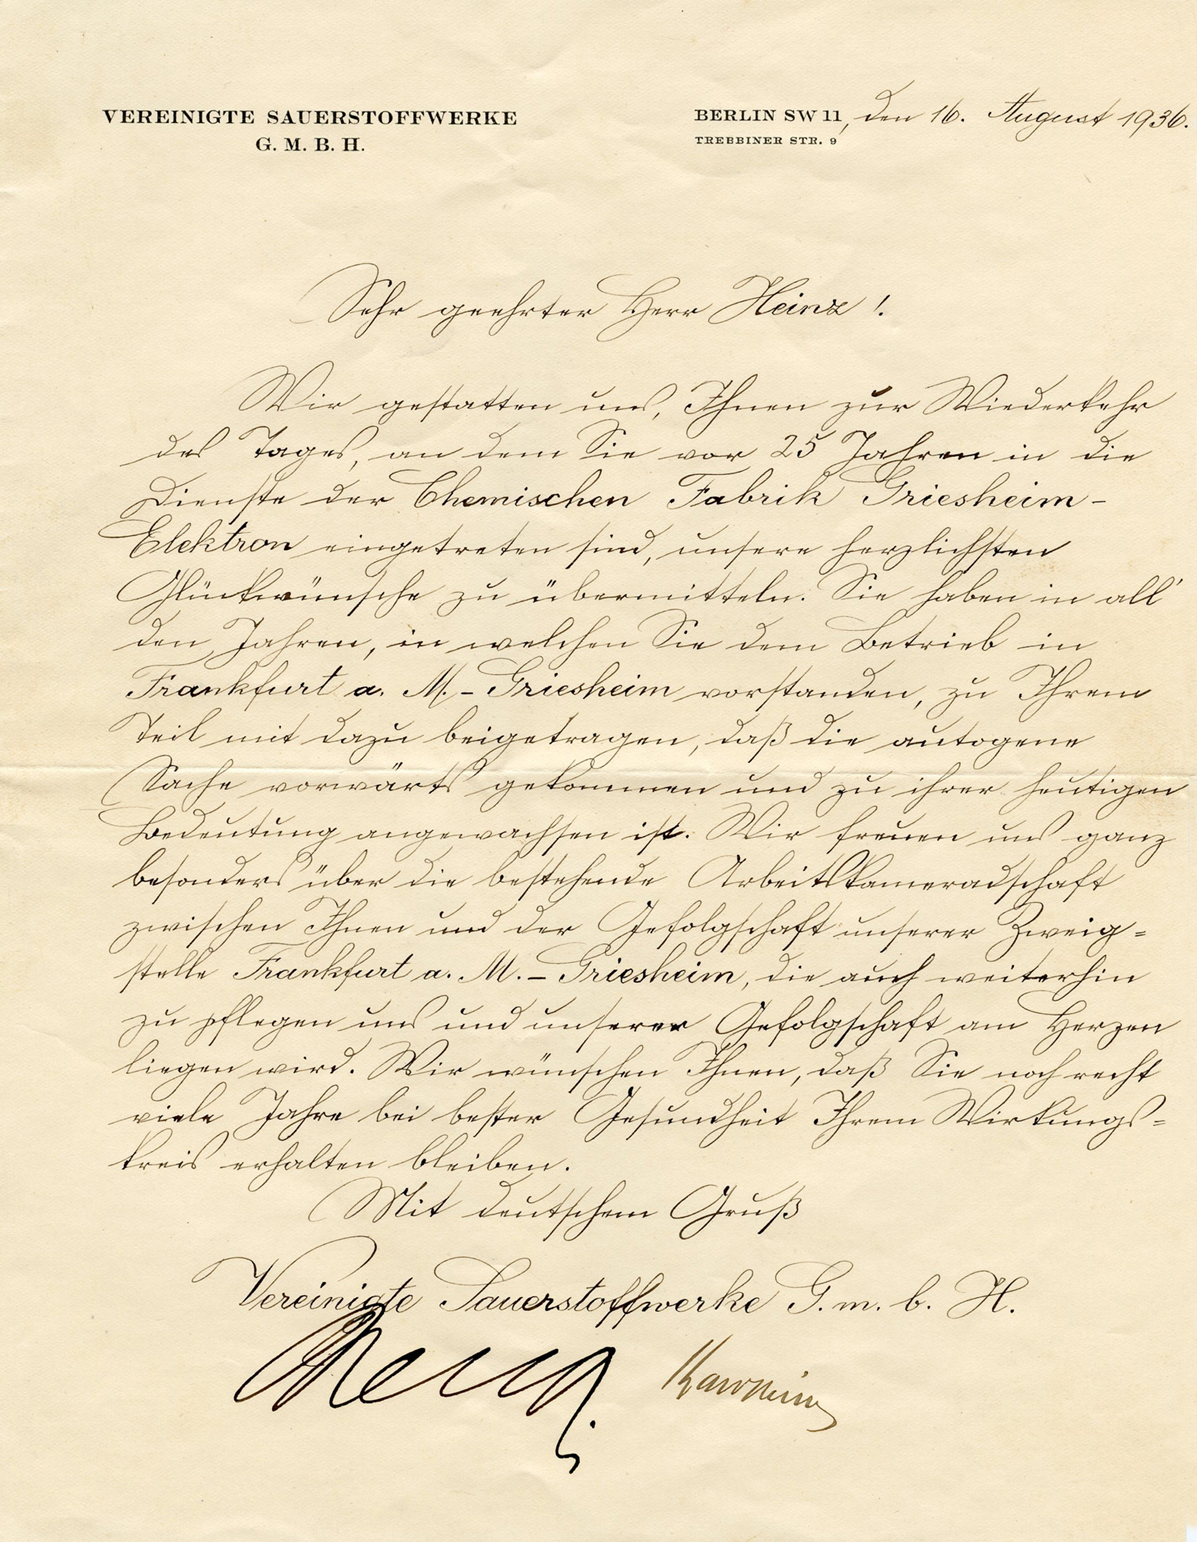 VEREINIGTE SAUERSTOFFWERKE
G. M. B. H.
BERLIN SW 11, den 16. August 1936.
TREBBINER STR. 9
Sehr geehrter Herr Heinz!
Wir gestatten uns, Ihnen zur Wiederkehr
des Tages, an dem Sie vor 25 Jahren in die
Dienste der Chemischen Fabrik Griesheim-
Elektron eingetreten sind, unsere herzlichsten
Glückwünsche zu übermitteln. Sie haben in all'
den Jahren, in welchen Sie dem Betrieb in
Frankfurt a. M.-Griesheim vorstanden, zu Ihrem
Teil mit dazu beigetragen, daß die autogene
Sache vorwärts gekommen und zu ihrer heutigen
Bedeutung angewachsen ist. Wir freuen uns ganz
besonders über die bestehende Arbeitskameradschaft
zwischen Ihnen und der Gefolgschaft unserer Zweig=
stelle Frankfurt a. M.-Griesheim, die auch weiterhin
zu pflegen uns und unserer Gefolgschaft am Herzen
liegen wird. Wir wünschen Ihnen, daß Sie noch recht
viele Jahre bei bester Gesundheit Ihrem Wirkungs=
kreis erhalten bleiben.
Mit deutschem Gruß
Vereinigte Sauerstoffwerke G. m. b. H.